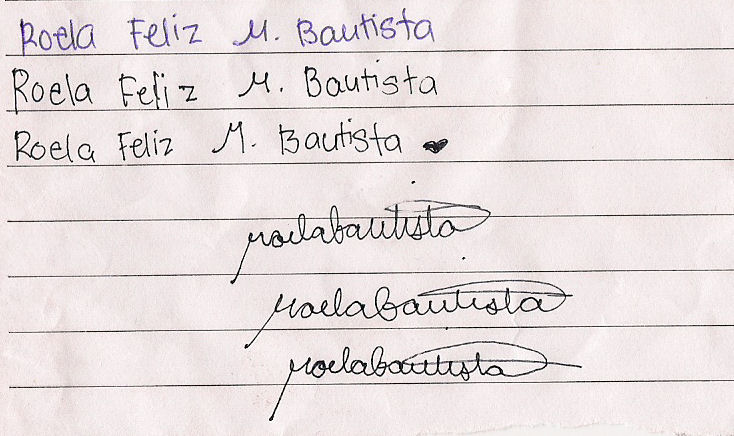 Roela Feliz M. Bautista
Roela Feliz M. Bautista
Roela Feliz M. Bautista
roelabautista
roelabautista
roelabautista